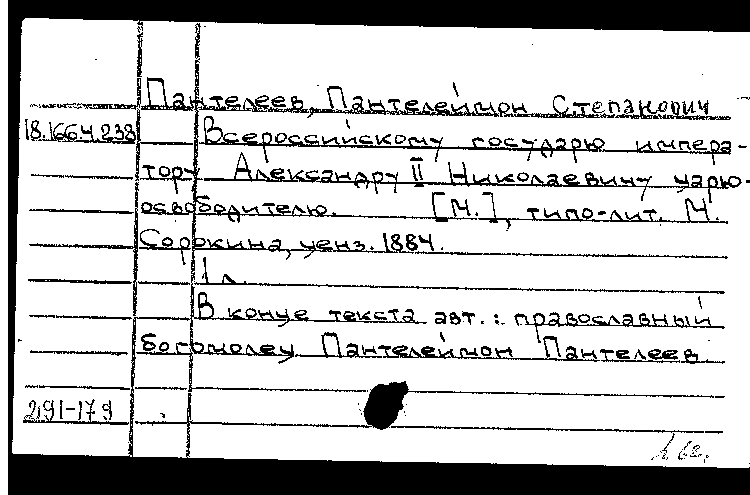 Пантелеев, Пантелеймон Степанович
18.166.4.238 Всероссийскому государю импера-
тору Александру II Николаевичу царю-
освободителю. [М.], типо-лит. М.
Сорокина, ценз. 1884.
1 л.
В конце текста авт.: православный
богомолец Пантелеймон Пантелеев
291-179